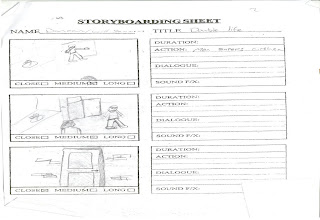 STORYBOARDING SHEET
NAME TITLE Double life
DURATION:
ACTION: Man
DIALOGUE:
SOUND F/X:
CLOSE MEDIUM LONG
DURATION:
ACTION:
DIALOGUE:
SOUND F/X:
CLOSE MEDIUM LONG
DURATION:
ACTION:
DIALOGUE:
SOUND F/X:
CLOSE MEDIUM LONG